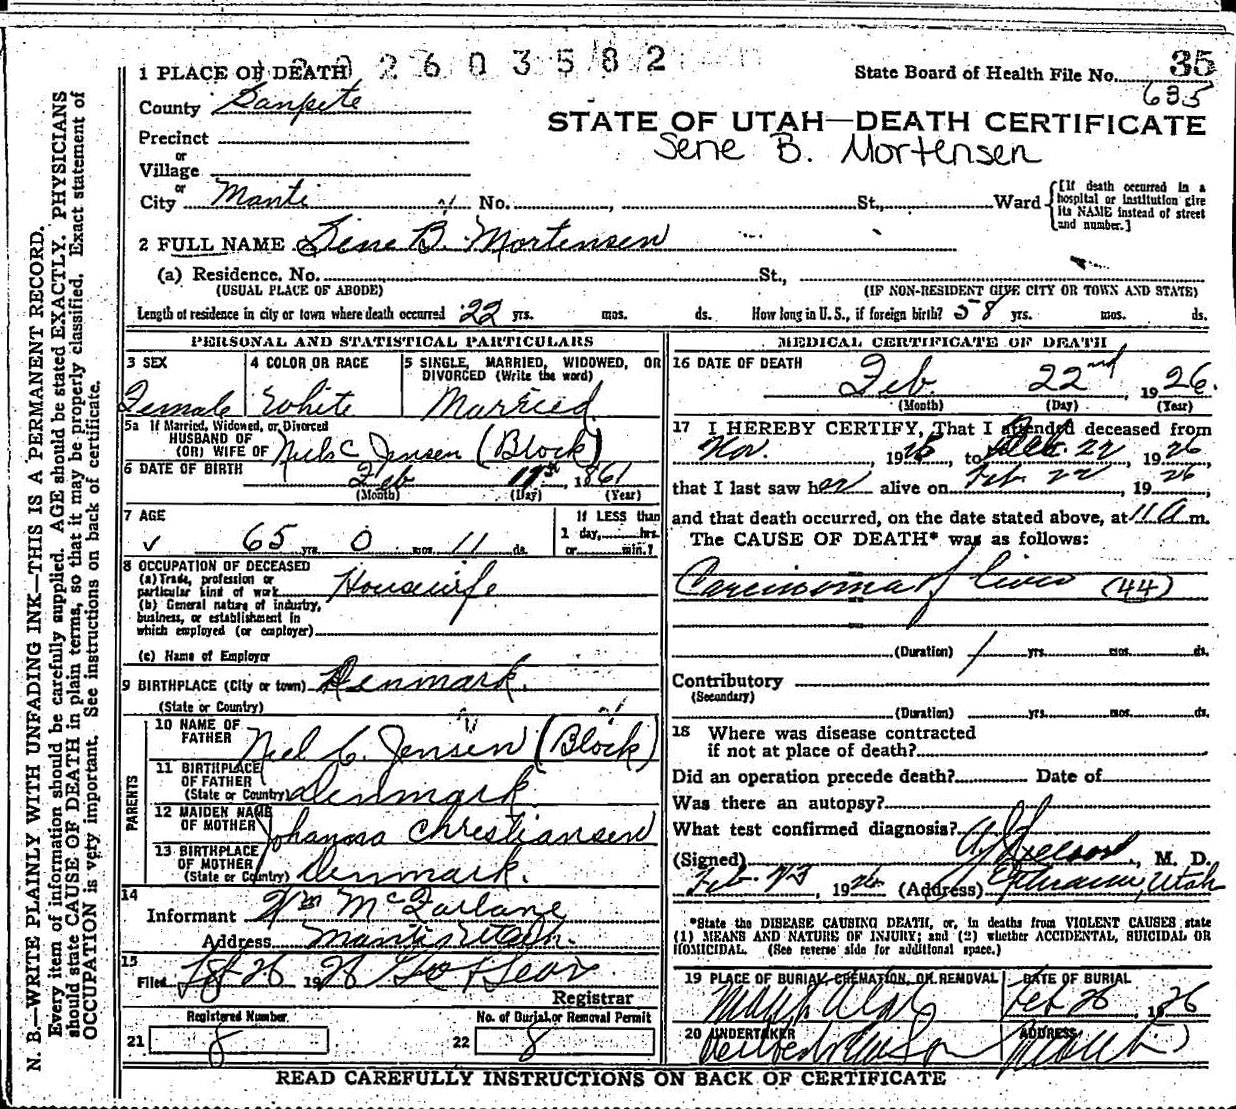 N. B.—WRITE PLAINLY WITH UNFADING INK—THIS IS A PERMANENT RECORD.
Every item of information should be carefully supplied. AGE should be stated EXACTLY. PHYSICIANS
should state CAUSE OF DEATH in plain terms, so that it may be properly classified. Exact statement of
OCCUPATION is very important. See instructions on back of certificate.
2603582
1 PLACE OF DEATH
State Board of Health File No. 35
635
County Sanpete
STATE OF UTAH—DEATH CERTIFICATE
Sene B. Mortensen
Precinct
or
Village
or
City Manti No. , St., Ward
[If death occurred in a
hospital or institution give
its NAME instead of street
and number.]
2 FULL NAME Sene B. Mortensen
(a) Residence. No. St.,
(USUAL PLACE OF ABODE) (IF NON-RESIDENT GIVE CITY OR TOWN AND STATE)
Length of residence in city or town where death occurred 22 yrs. mos. ds. How long in U. S., if foreign birth? 58 yrs. mos. ds.
PERSONAL AND STATISTICAL PARTICULARS
3 SEX
Female
4 COLOR OR RACE
White
5 SINGLE, MARRIED, WIDOWED, OR
DIVORCED (Write the word)
Married
5a If Married, Widowed, or Divorced
HUSBAND OF
(OR) WIFE OF Niels C Jensen (Block)
6 DATE OF BIRTH Feb 11 1861
(Month) (Day) (Year)
7 AGE
65 yrs. 0 mos. 11 ds.
If LESS than
1 day, hrs.
or min.?
8 OCCUPATION OF DECEASED
(a) Trade, profession or
particular kind of work Housewife
(b) General nature of industry,
business, or establishment in
which employed (or employer)
(c) Name of Employer
9 BIRTHPLACE (City or town) Denmark.
(State or Country)
PARENTS
10 NAME OF
FATHER Niel C. Jensen (Block)
11 BIRTHPLACE
OF FATHER
(State or Country) Denmark.
12 MAIDEN NAME
OF MOTHER Johanna Christiansen
13 BIRTHPLACE
OF MOTHER
(State or Country) Denmark.
14
Informant Wm McFarlane
Address Manti Utah.
15
Filed 26 19 26
Registrar
Registered Number.
21 8
No. of Burial or Removal Permit
22 8
MEDICAL CERTIFICATE OF DEATH
16 DATE OF DEATH
Feb. 22nd, 1926.
(Month) (Day) (Year)
17 I HEREBY CERTIFY, That I attended deceased from
Nov. , 1925 to Feb. 22, 1926,
that I last saw her alive on Feb 22, 1926,
and that death occurred, on the date stated above, at 11 A m.
The CAUSE OF DEATH* was as follows:
Carcinoma of Liver (44)
(Duration) 1 yrs. mos. ds.
Contributory
(Secondary)
(Duration) yrs. mos. ds.
18 Where was disease contracted
if not at place of death?
Did an operation precede death? Date of
Was there an autopsy?
What test confirmed diagnosis?
(Signed) , M. D.
Feb. 23, 1926 (Address) Ephraim, Utah
*State the DISEASE CAUSING DEATH, or, in deaths from VIOLENT CAUSES, state
(1) MEANS AND NATURE OF INJURY; and (2) whether ACCIDENTAL, SUICIDAL OR
HOMICIDAL. (See reverse side for additional space.)
19 PLACE OF BURIAL, CREMATION, OR REMOVAL
Manti Utah
DATE OF BURIAL
Feb 26, 1926
20 UNDERTAKER
ADDRESS
Manti
READ CAREFULLY INSTRUCTIONS ON BACK OF CERTIFICATE